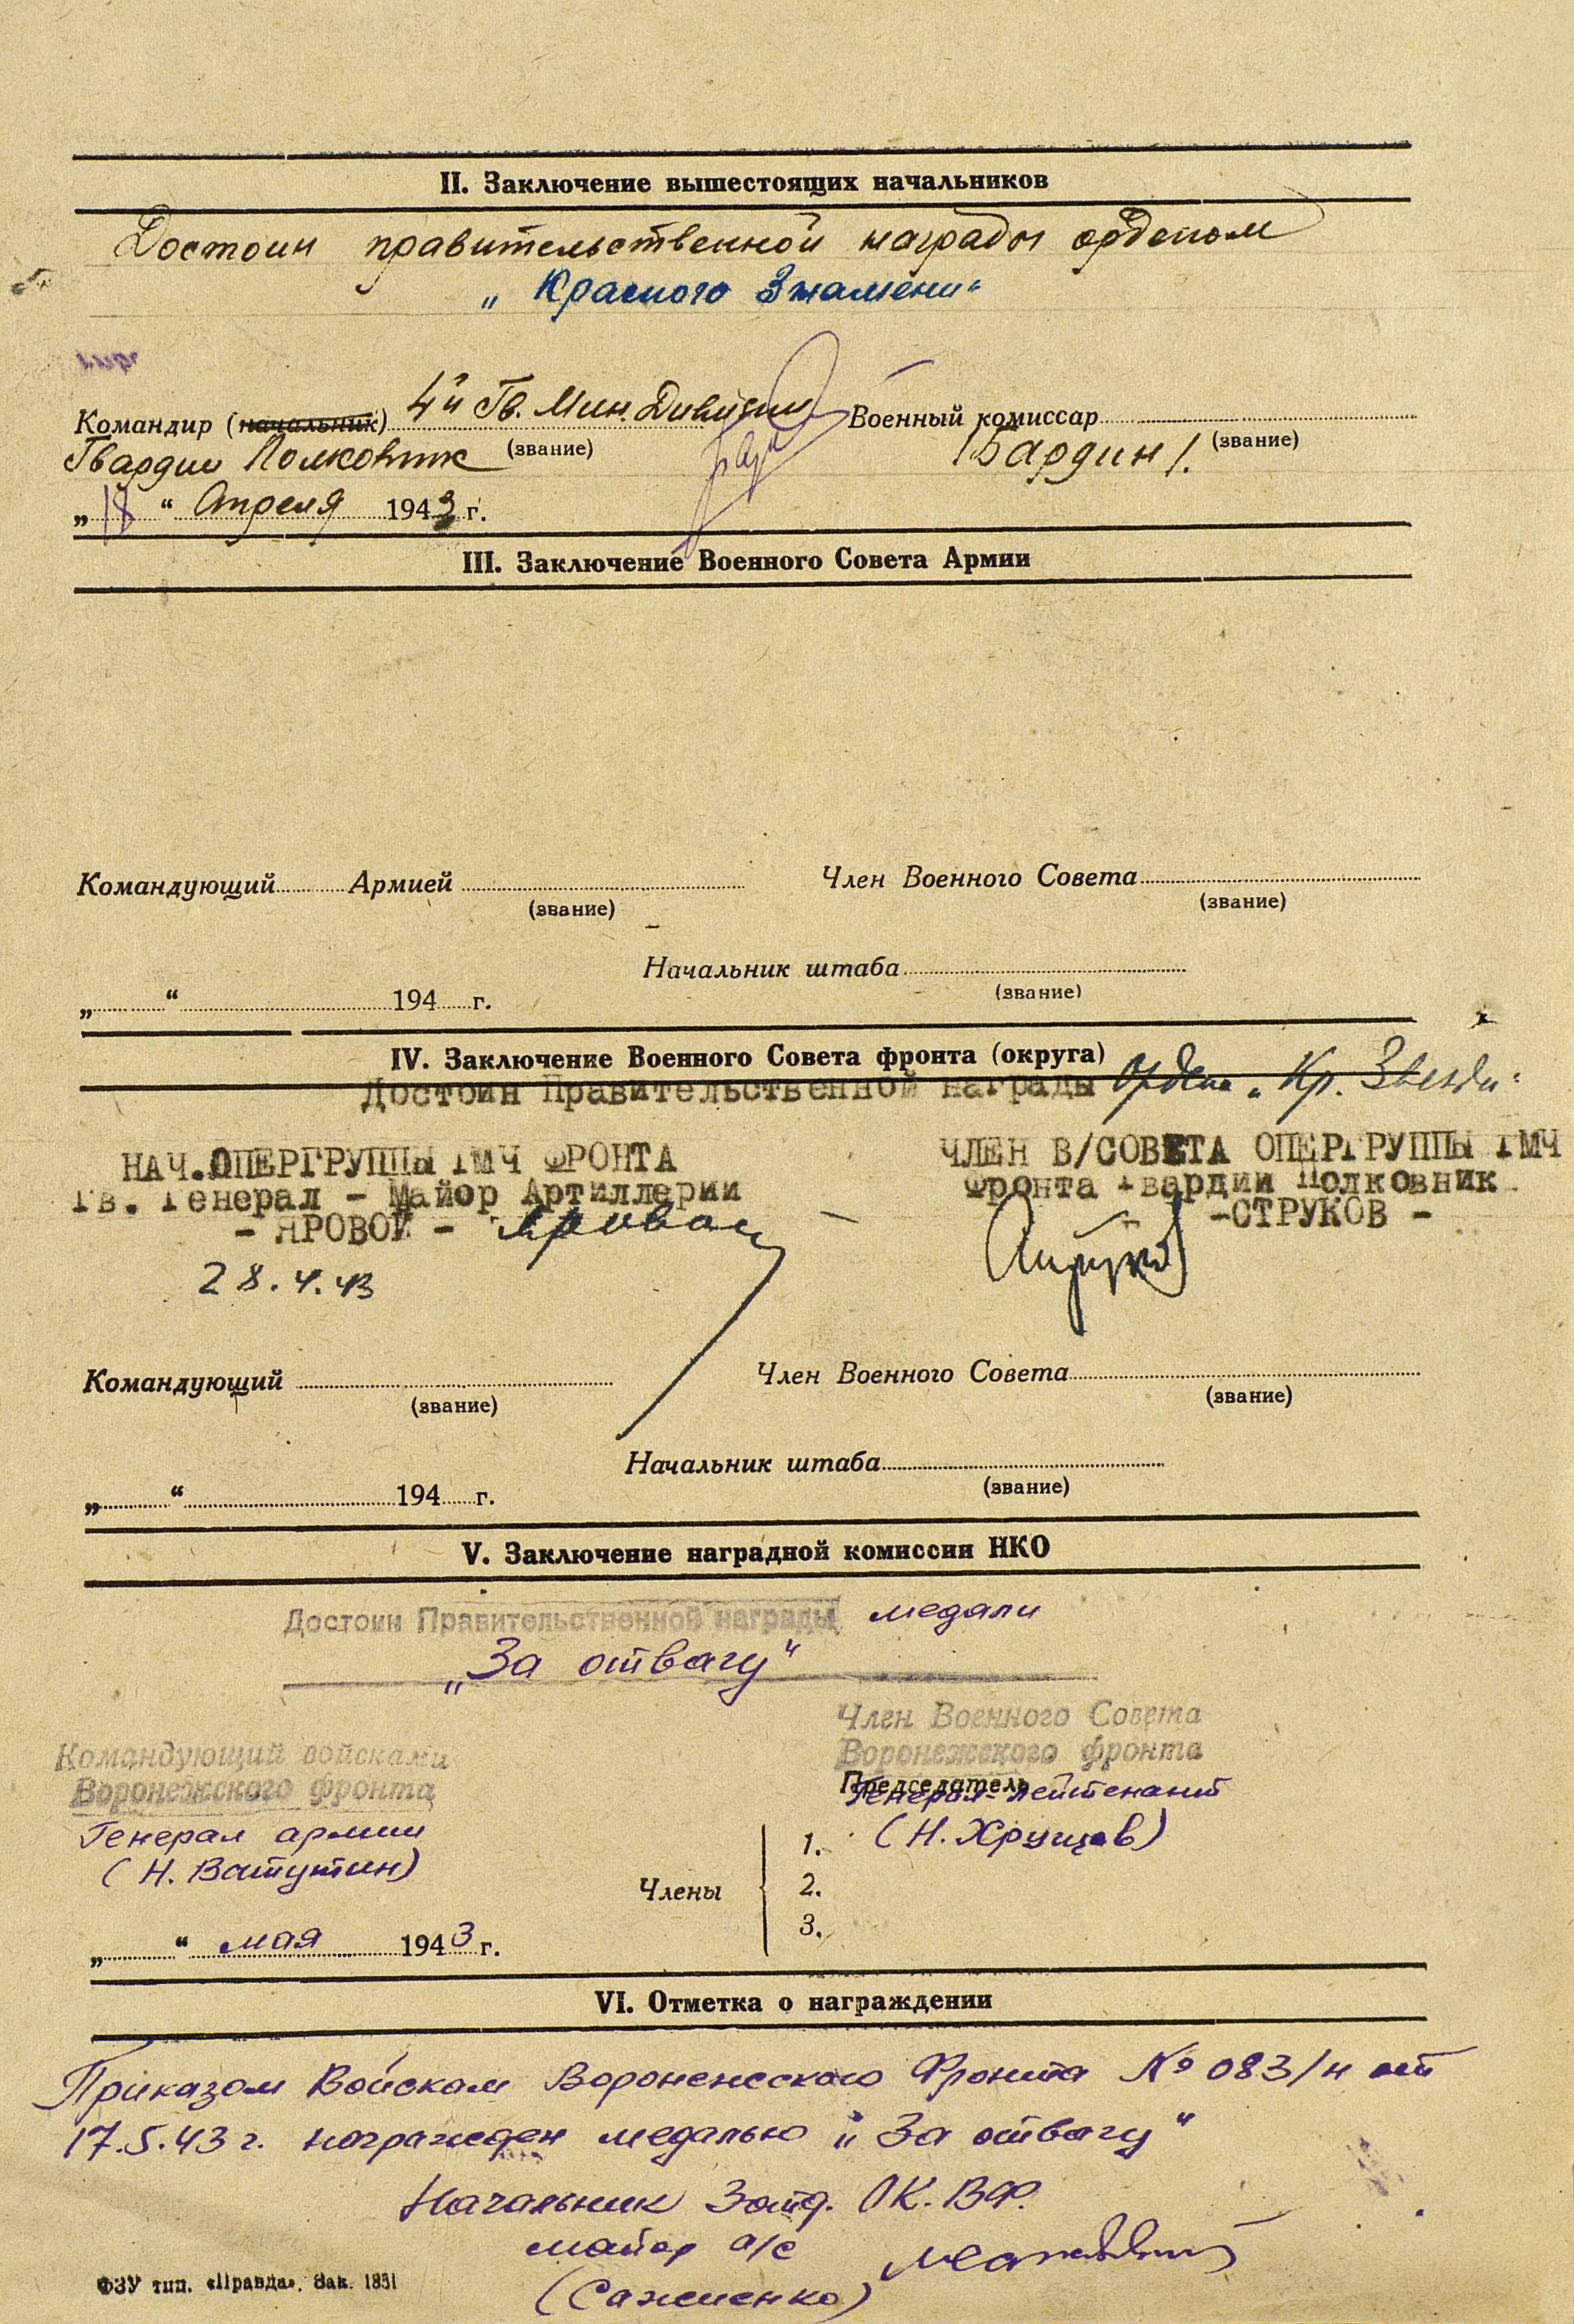 II. Заключение вышестоящих начальников
Достоин правительственной награды орденом
„Красного Знамени“
Командир (начальник) 4й Гв. Мин. Дивизии Военный комиссар
Гвардии Полковник (звание) /Бардин/. (звание)
„18“ Апреля 1943 г.
III. Заключение Военного Совета Армии
Командующий Армией Член Военного Совета
(звание) (звание)
Начальник штаба
(звание)
„ “ 194 г.
IV. Заключение Военного Совета фронта (округа)
Достоин Правительственной награды Ордена „Кр. Звезды“
НАЧ. ОПЕРГРУППЫ ГМЧ ФРОНТА ЧЛЕН В/СОВЕТА ОПЕРГРУППЫ ГМЧ
Гв. Генерал - Майор Артиллерии Фронта Гвардии Полковник
- ЯРОВОЙ - -СТРУКОВ -
28.4.43
Командующий Член Военного Совета
(звание) (звание)
Начальник штаба
(звание)
„ “ 194 г.
V. Заключение наградной комиссии НКО
Достоин Правительственной награды медали
„За отвагу“
Член Военного Совета
Командующий войсками Воронежского фронта
Воронежского фронта Председатель
Генерал-лейтенант
Генерал армии 1. (Н. Хрущев)
(Н. Ватутин)
Члены 2.
3.
„ “ мая 1943 г.
VI. Отметка о награждении
Приказом Войскам Воронежского Фронта № 083/н от
17.5.43 г. награжден медалью „За отвагу“
Начальник 3 отд. ОК. ВФ.
майор а/с
(Саженко)
ФЗУ тип. «Правда». Зак. 1851